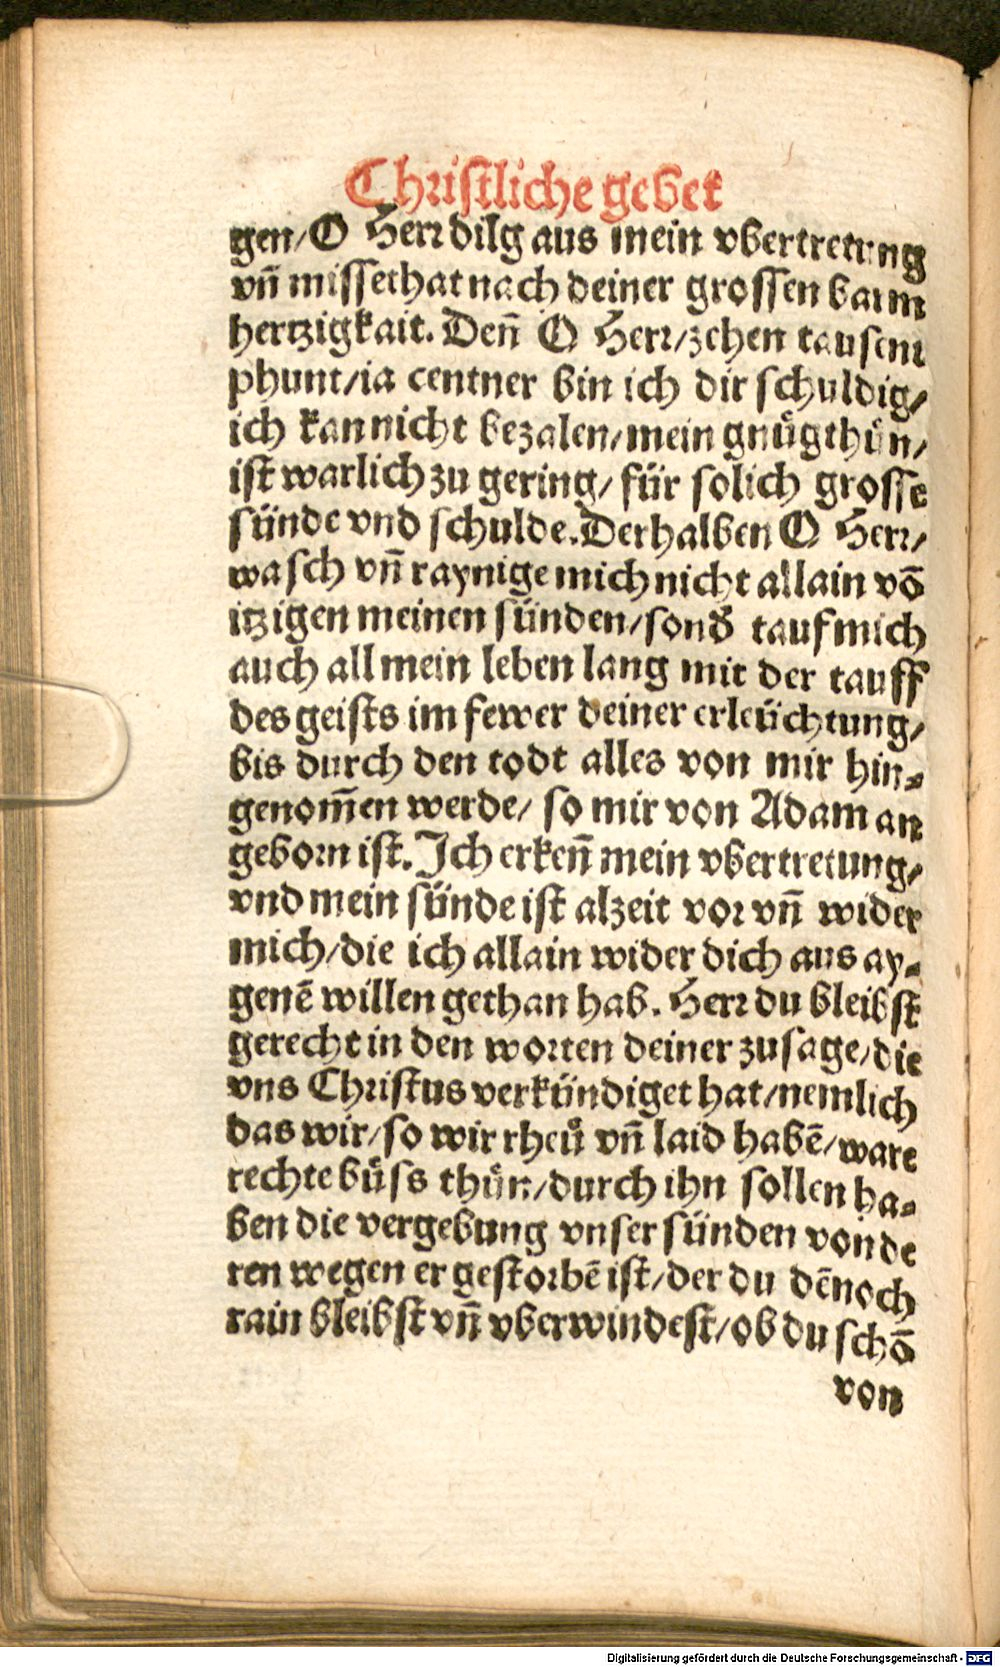 Christliche gebet
gen/ O Herr dilg aus mein vbertretung
vñ missethat nach deiner grossen barm
hertzigkait. Deñ O Herr/ zehen tausent
phunt/ ia centner bin ich dir schuldig/
ich kan nicht bezalen/ mein gnügthůn/
ist warlich zu gering/ für solich grosse
sünde vnd schulde. Derhalben O Herr/
wasch vñ raynige mich nicht allain võ
itzigen meinen sünden/ sond̕ tauf mich
auch all mein leben lang mit der tauff
des geists im fewer deiner erleüchtung/
bis durch den todt alles von mir hin⸗
genom̃en werde/ so mir von Adam an
geborn ist. Ich erkeñ mein vbertretung/
vnd mein sünde ist alzeit vor vñ wider
mich/ die ich allain wider dich aus ay⸗
genē willen gethan hab. Herr du bleibst
gerecht in den worten deiner zusage/ die
vns Christus verkündiget hat/ nemlich
das wir/ so wir rheů vñ laid habē/ ware
rechte bůss thůn/ durch ihn sollen ha⸗
ben die vergebung vnser sünden von de
ren wegen er gestorbē ist/ der du dēnoch
rain bleibst vñ vberwindest/ ob du schō
von
Digitalisierung gefördert durch die Deutsche Forschungsgemeinschaft - DFG